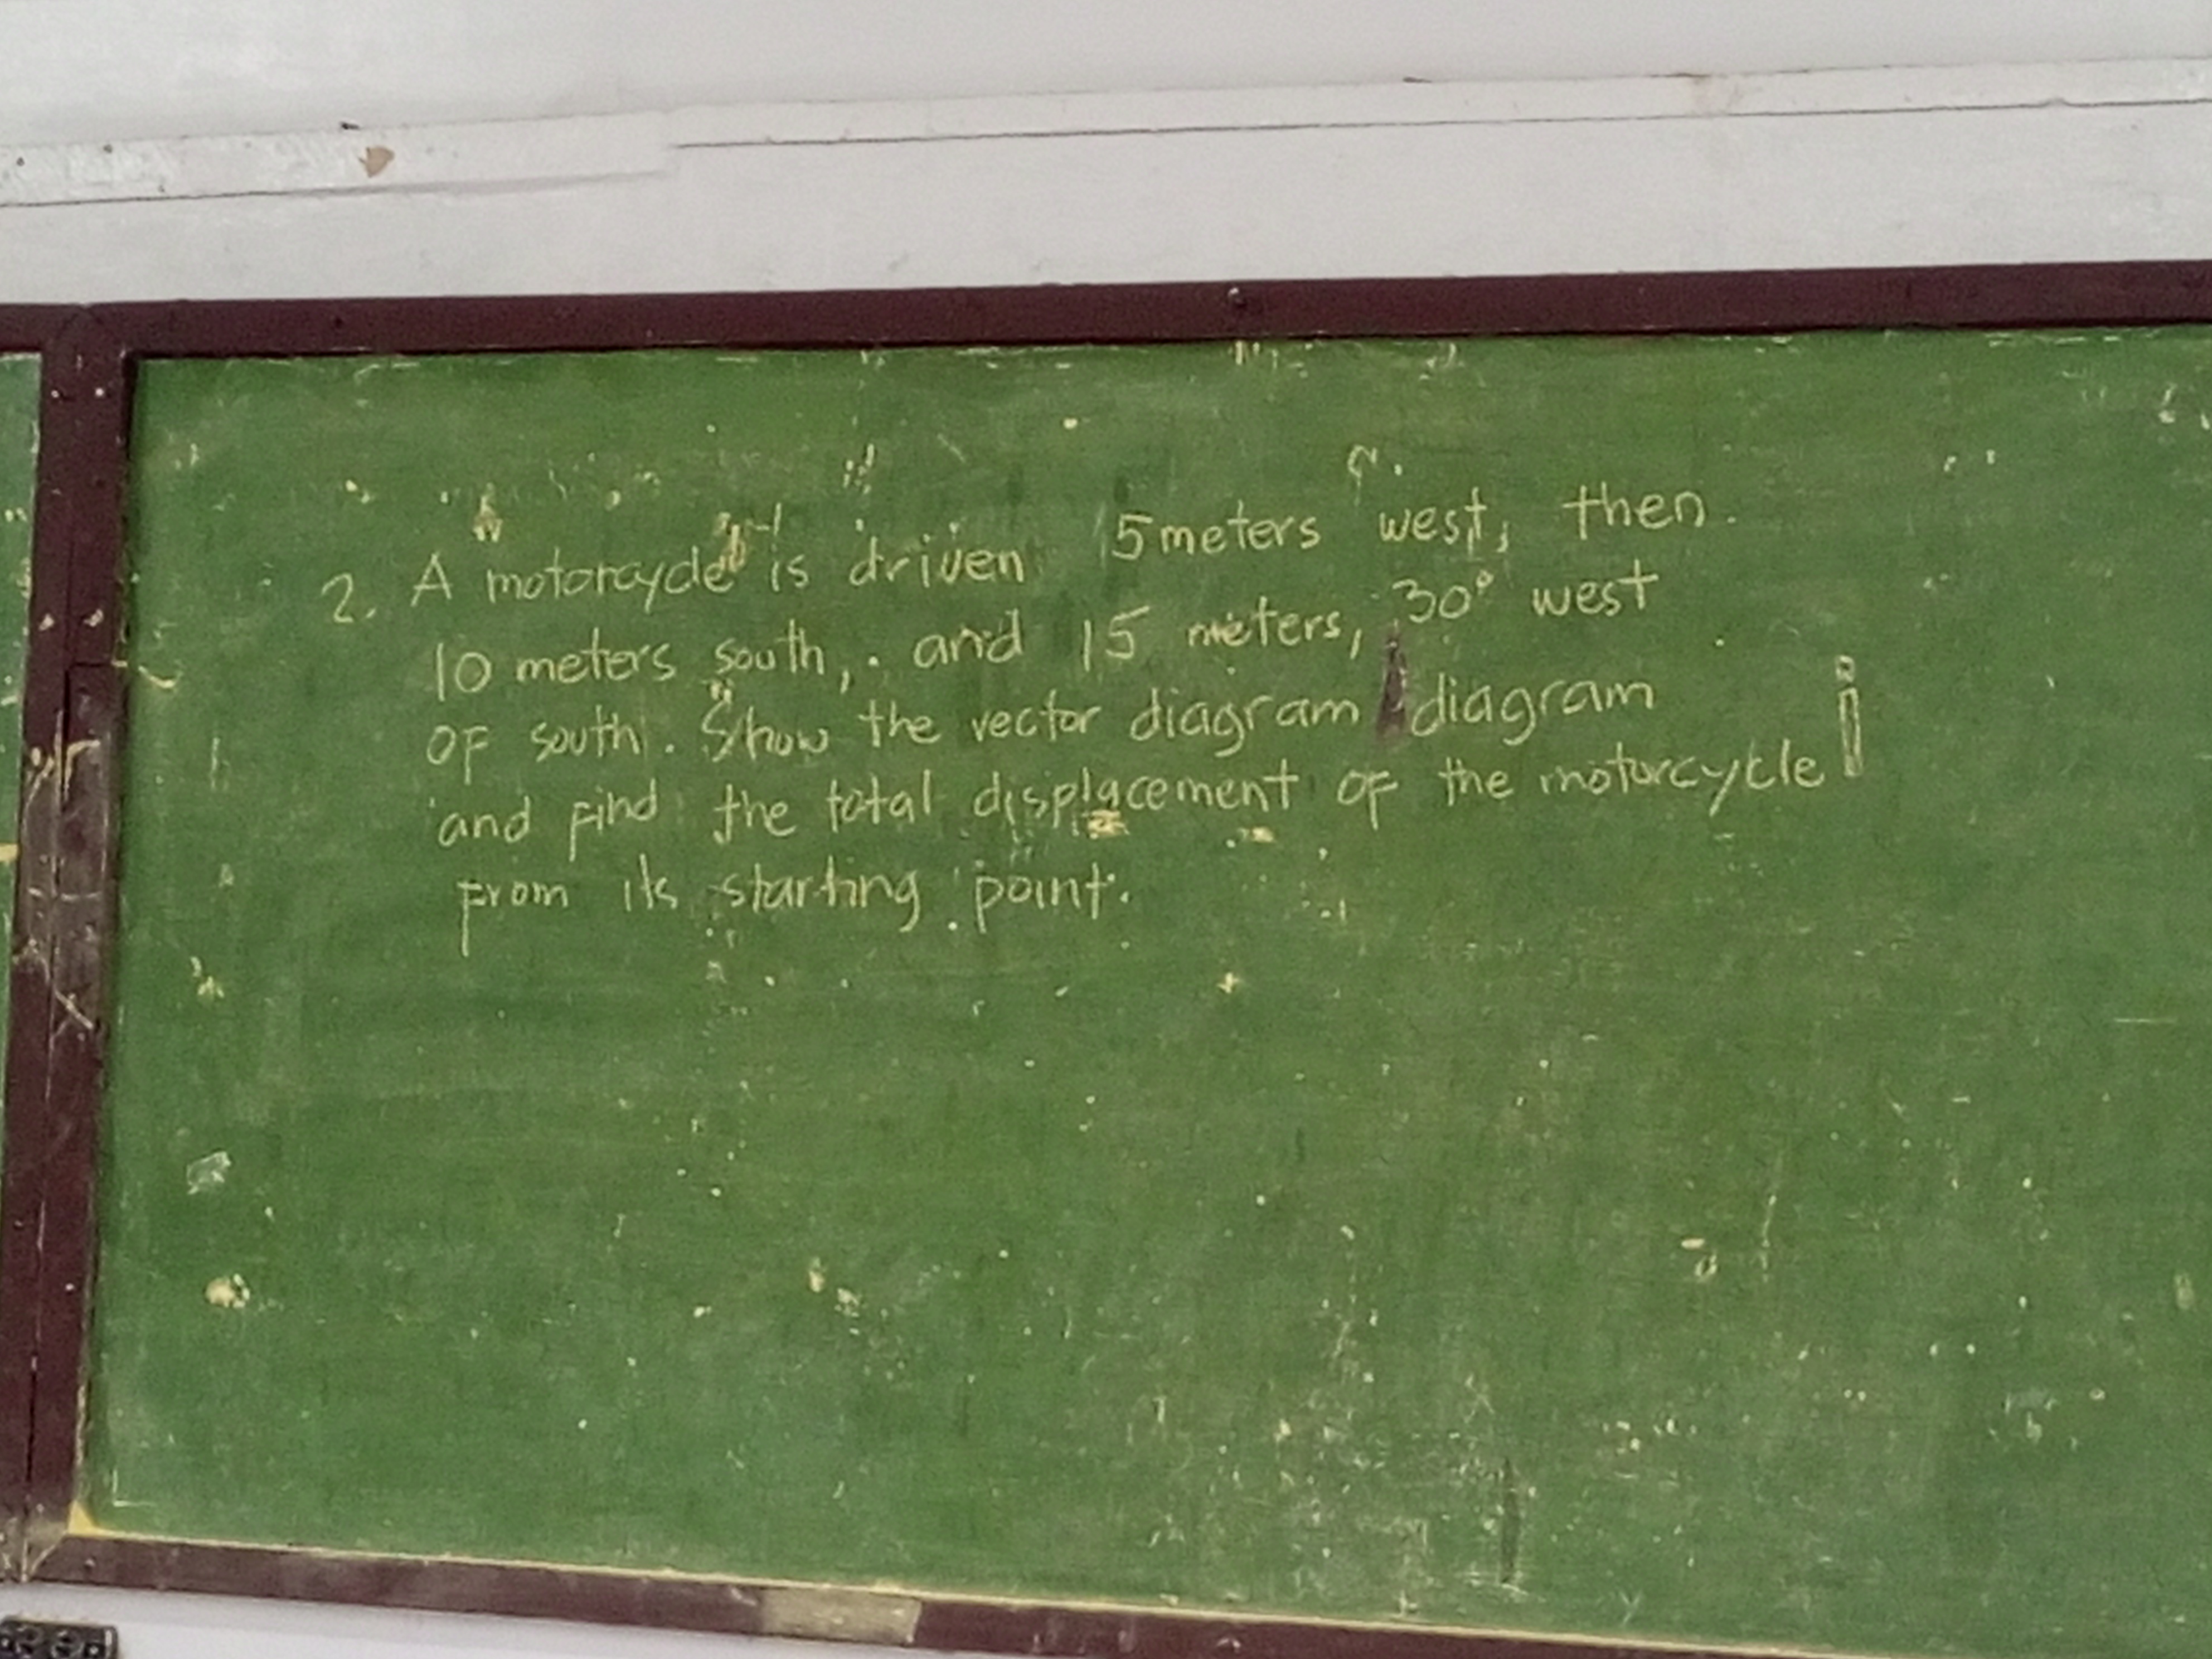 2. A motorcycle is driven 15 meters west, then
10 meters south, and 15 meters, 30° west
of south. Show the vector diagram diagram
and find the total displacement of the motorcycle
from its starting point.